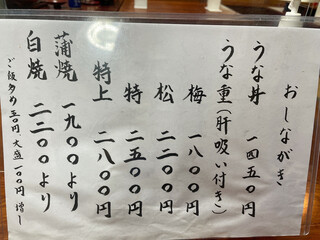 おしながき
うな丼 一四五〇円
うな重(肝吸い付き)
梅 一八〇〇円
松 二二〇〇円
特 二五〇〇円
特上 二八〇〇円
蒲焼 一九〇〇より
白焼 二二〇〇より
ご飯多め 五〇円、大盛 一〇〇円 増し